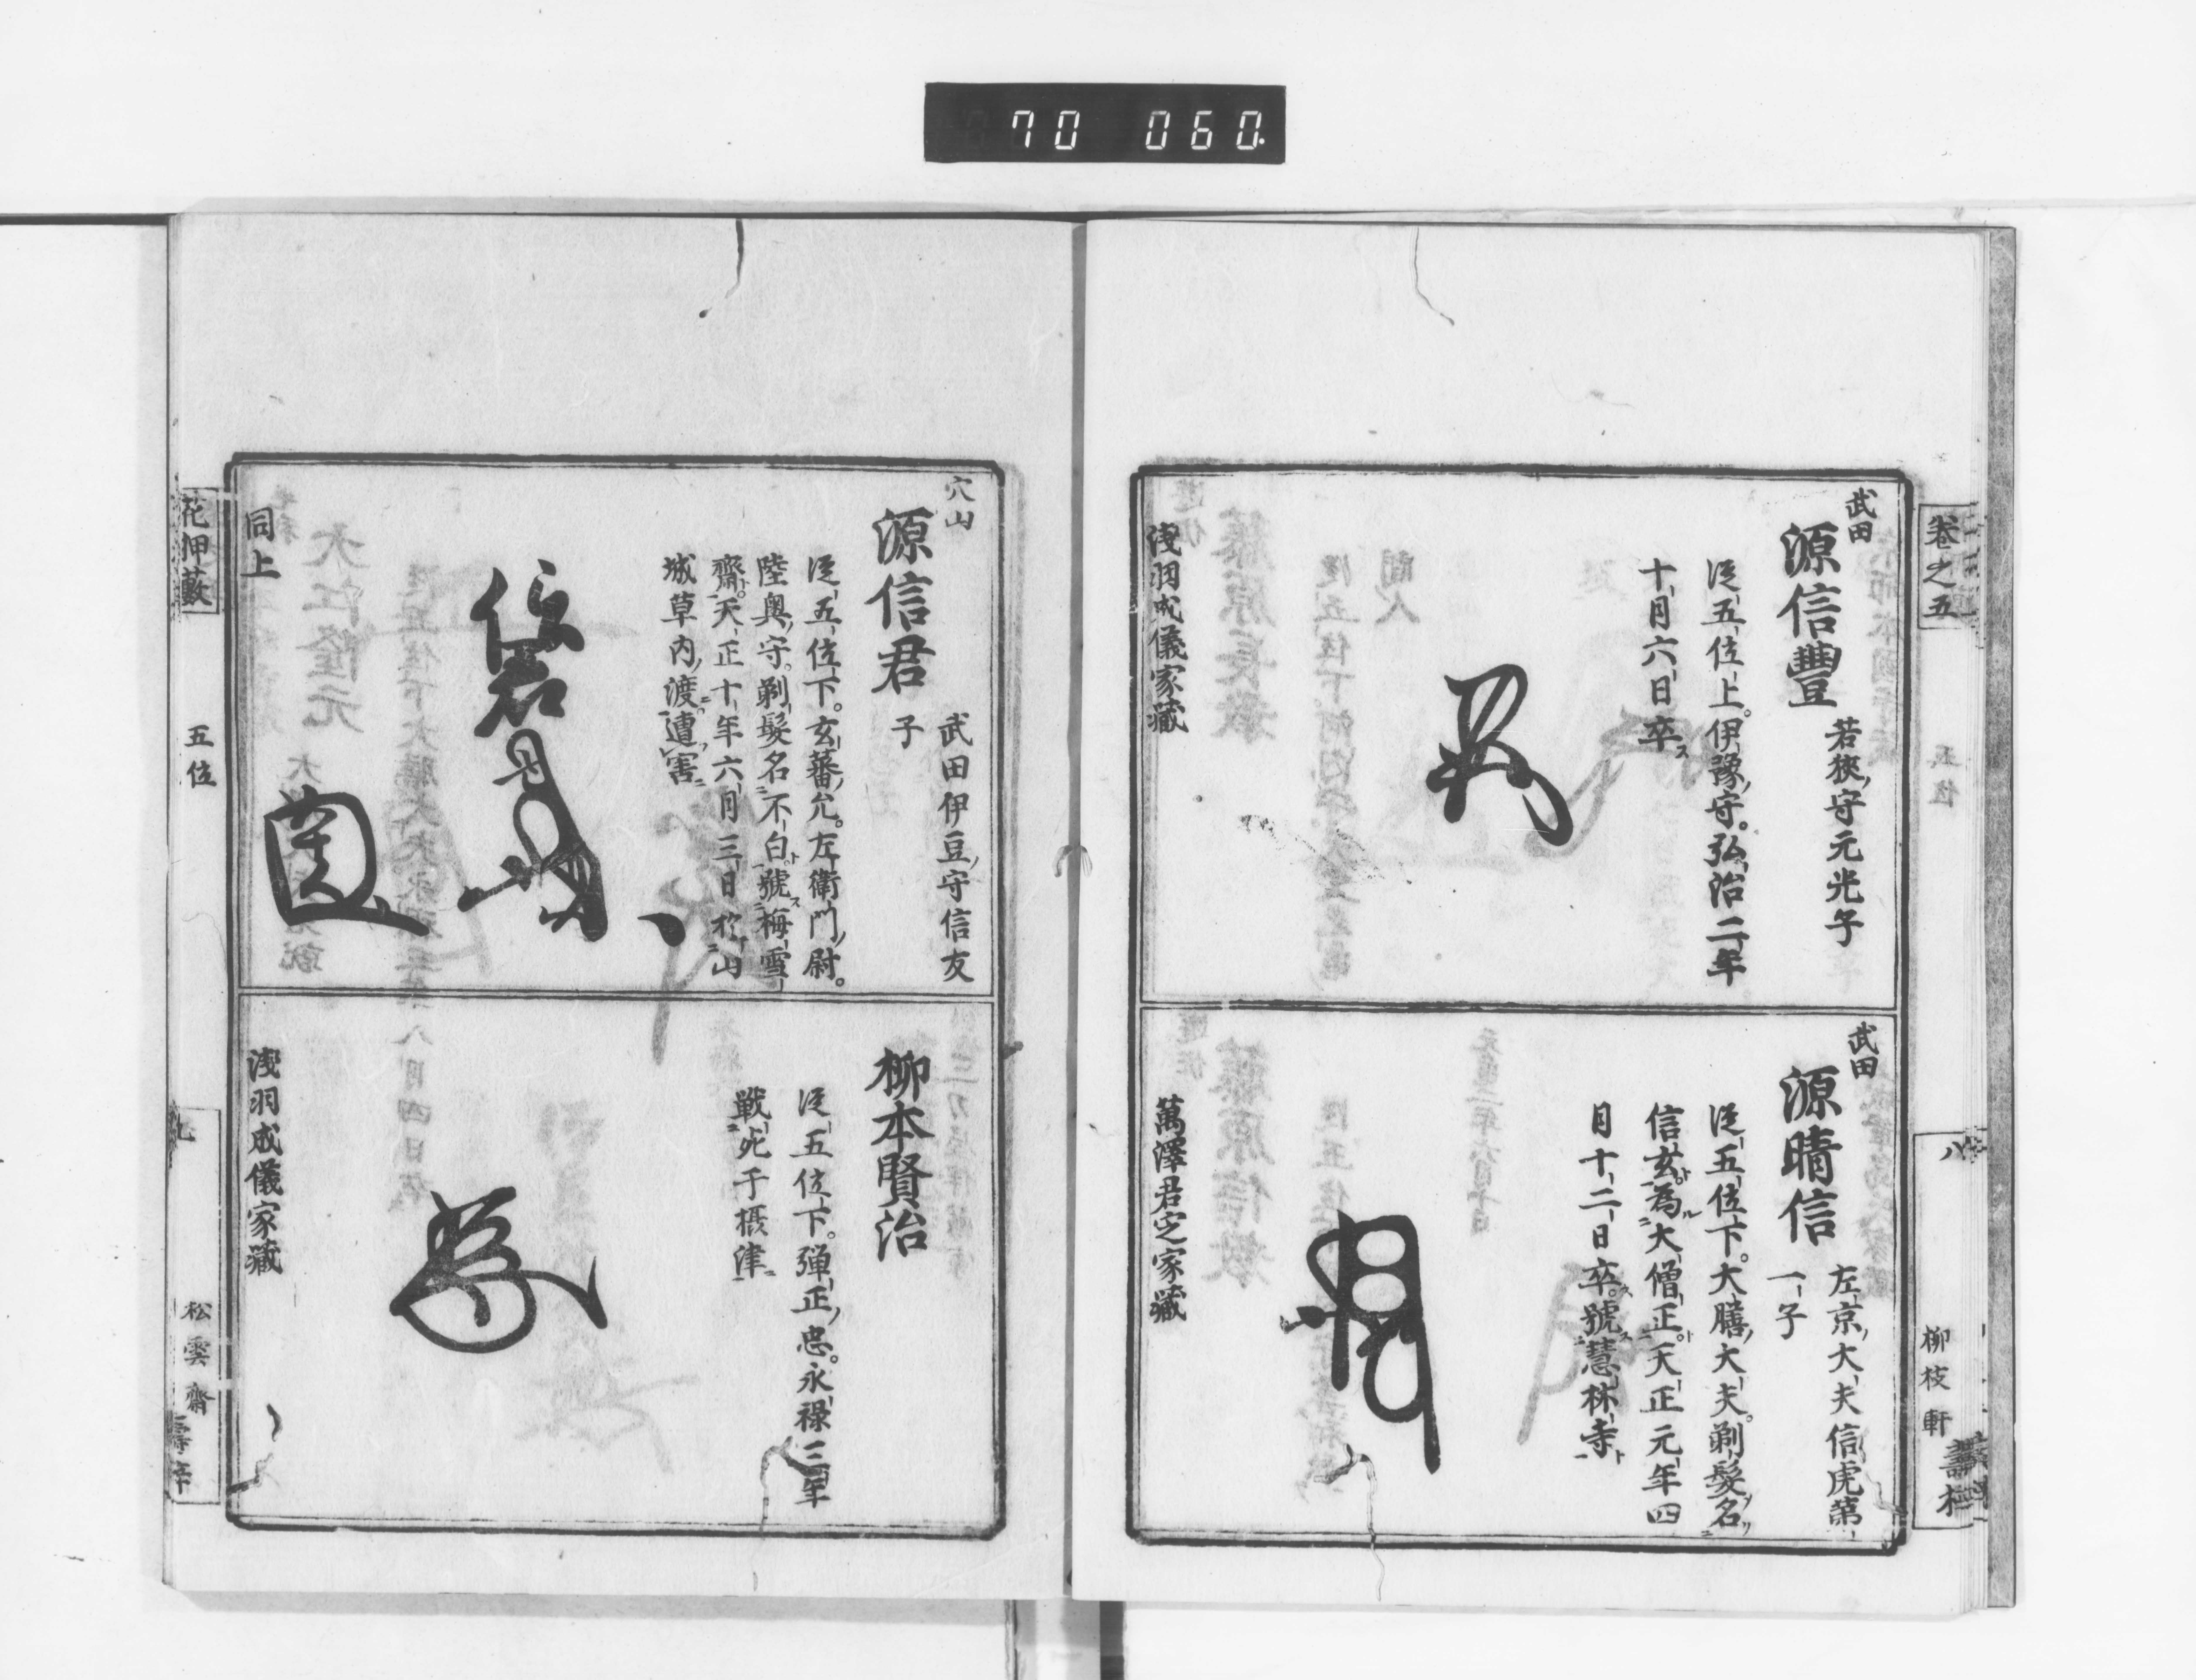 70 060.
卷之五
八
柳枝軒
武田
源信豊
若狹守元光子
従五位上。伊豫守。弘治二年
十月六日卒ス
浅羽成儀家藏
武田
源晴信
左京大夫信虎第
一子
従五位下。大膳大夫。剃髮名
信玄。為大僧正。天正元年四
月十二日卒。號慧林寺
萬澤君定家藏
穴山
源信君
武田伊豆守信友
子
従五位下。玄蕃允。左衛門尉。
陸奥守。剃髮名不白。號梅雪
齋。天正十年六月三日於山
城草内渡遭害
同上
柳本賢治
従五位下。弾正忠。永禄三年
戦死于摂津
浅羽成儀家藏
花押藪
五位
九
松雲齋